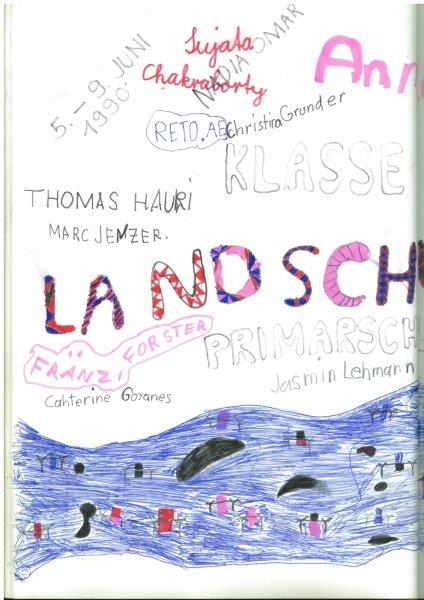 5. – 9. JUNI
1990
Sujata
Chakraborty
NADIA OMAR
Ann
RETO. AE
Christina Grunder
KLASSE
THOMAS HAURI
MARC JENZER.
LANDSCH
FRÄNZI FORSTER
PRIMARSCH
Jasmin Lehmann
Cahterine Goranes